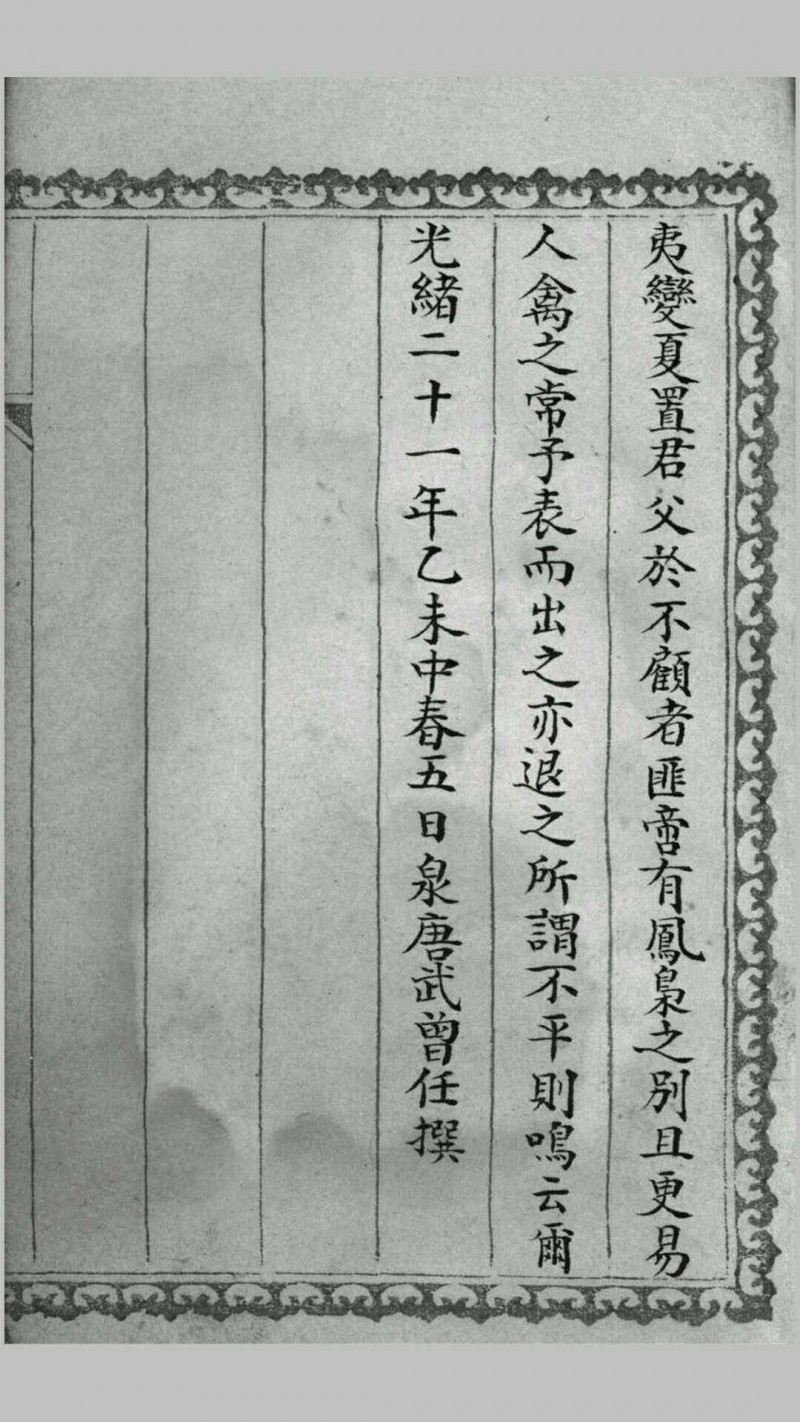 夷變夏置君父於不顧者匪啻有鳳梟之別且更易
人禽之常予表而出之亦退之所謂不平則鳴云爾
光緒二十一年乙未中春五日泉唐武曾任撰